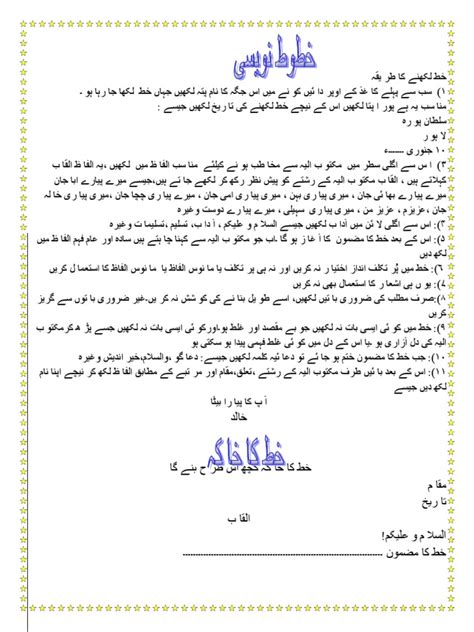 خطوط نویسی
خط لکھنے کا طر یقہ
۱) سب سے پہلے کا غذ کے اوپر دا ئیں کو نے میں اس جگہ کا نام پتہ لکھیں جہاں خط لکھا جا رہا ہو ۔
منا سب یہ ہے پور ا پتا لکھیں اس کے نیچے خط لکھنے کی تا ریخ لکھیں جیسے :
سلطان پو رہ
لا ہو ر
۱۰ جنوری ------ء
۳) ا س سے اگلی سطر میں مکتو ب الیہ سے مخا طب ہو نے کیلئے منا سب الفا ظ میں لکھیں ،یہ الفا ظ القا ب
کہلاتے ہیں ، القا ب مکتو ب الیہ کے رشتے کو پیش نظر رکھ کر لکھے جا تے ہیں،جیسے میرے پیارے ابا جان
میرے پیا رے بھا ئی جان ، میری پیا ری بہن ، میری پیا ری امی جان ، میری پیا ری چچا جان ،میری پیا ری خا لہ
جان ، عزیزم ، عزیز من ، میری پیا ری سہیلی ، میرے پیا رے دوست وغیرہ
۴): اس سے اگلی لا ئن میں آدا ب لکھیں جیسے السلا م و علیکم ، آدا ب، تسلیم ،تسلیما ت وغیرہ
۵): اس کے بعد خط کا مضمون کا آ غا ز ہو گا ،اب جو مکتو ب الیہ سے کہنا چا ہتے ہیں سادہ اور عام فہم الفا ظ میں
لکھ دیں
۶): خط میں پُر تکلف انداز اختیا ر نہ کریں اور نہ ہی پر تکلف یا ما نوس الفاظ کا استعما ل کریں
۷): یو ں ہی اشعا ر کا استعمال بھی نہ کریں
۸):صرف مطلب کی ضروری با تیں لکھیں، اسے طو یل بنا نے کی کو شش نہ کر یں،غیر ضروری با توں سے گریز
کریں
۹): خط میں کو ئی ایسی بات نہ لکھیں جو بے مقصد اور غلط ہو،اورکو ئی ایسی بات نہ لکھیں جسے پڑ ھ کرمکتو ب
الیہ کی دل آزاری ہو ،یا اس کے دل میں کو ئی غلط فہمی پیدا ہو سکتی ہو
۱۰): جب خط کا مضمون ختم ہو جا ئے تو دعا ئیہ کلمہ لکھیں جیسے: دعا گو ،والسلام،خیر اندیش وغیرہ
۱۱): اس کے بعد با ئیں طرف مکتوب الیہ کے رشتے ،تعلق،مقام اور مر تبے کے مطابق الفا ظ لکھ کر نیچے اپنا نام
لکھ دیں جیسے
آ پ کا پیا را بیٹا
خالد
خط کا خاکہ
خط کا خا کہ کچھ اس طر اح بنے گا
مقا م
تا ریخ
القا ب
السلا م و علیکم!
خط کا مضمون ------------------------------------------------